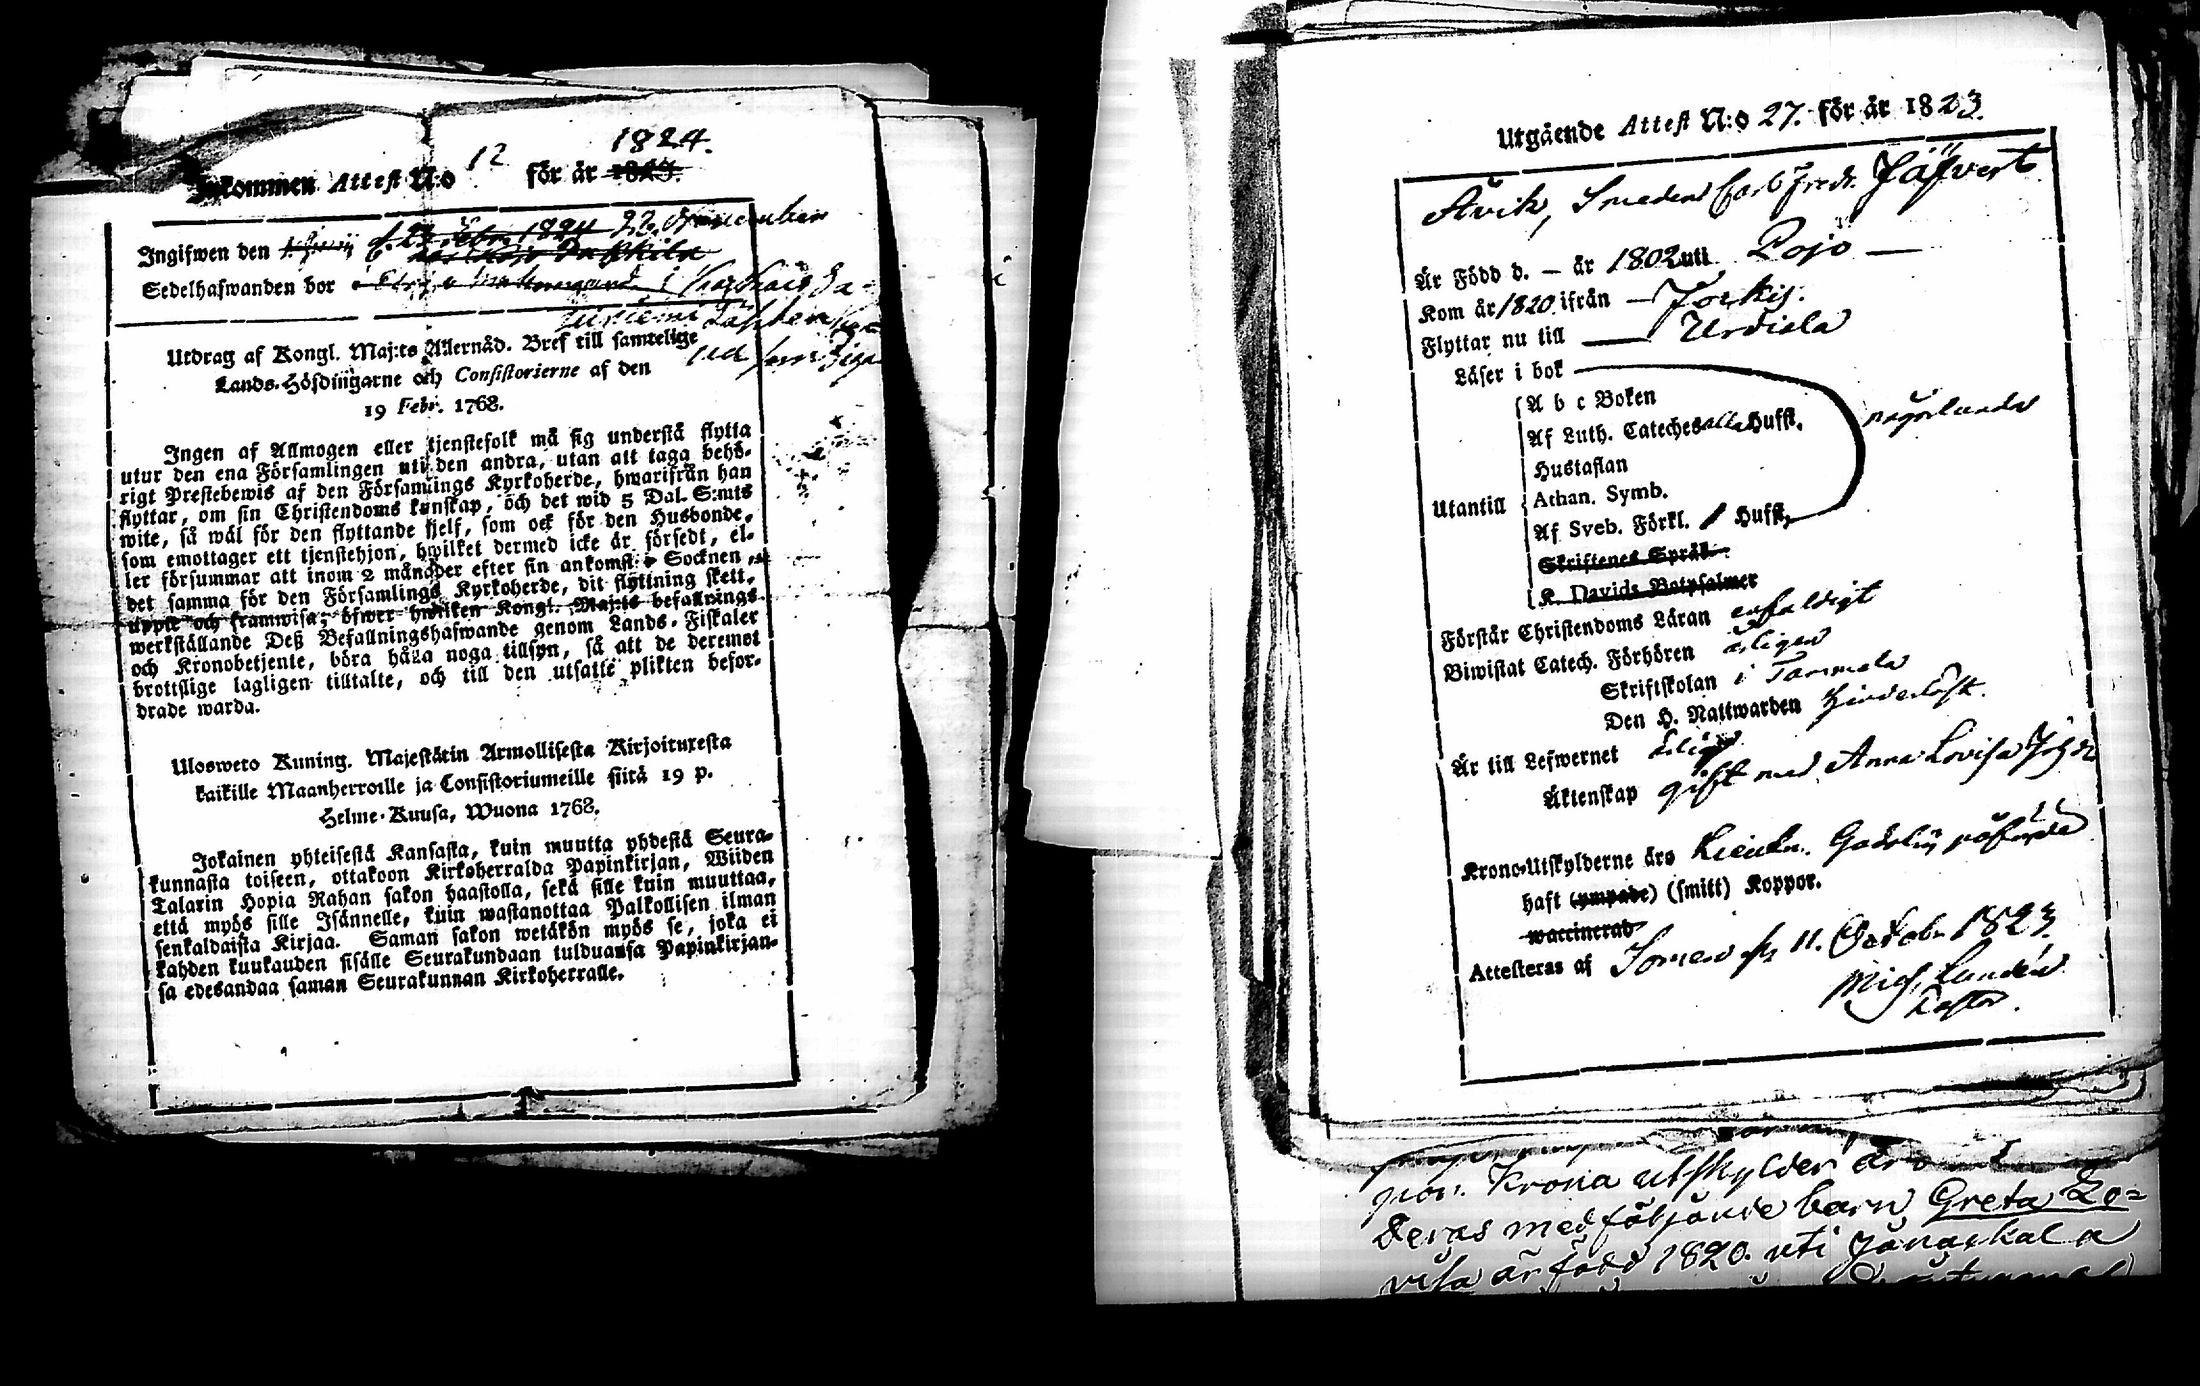 Inkommen Attest N:o 12 för år 1823. 1824.
Ingifwen den 22 November
Sedelhafwanden bor i
Utdrag af Kongl. Maj:ts Allernåd. Bref till samtelige
Lands-Höfdingarne och Consistorierne af den
19 Febr. 1768.
Ingen af Allmogen eller tjenstefolk må sig understå flytta
utur den ena Församlingen uti den andra, utan att taga behö-
rigt Prestebewis af den Församlings Kyrkoherde, hwarifrån han
flyttar, om sin Christendoms kunskap, och det wid 5 Dal. S:mts
wite, så wäl för den flyttande sjelf, som ock för den Husbonde,
som emottager ett tjenstehjon, hwilket dermed icke är försedt, el-
ler försummar att inom 2 månader efter sin ankomst Socknen
det samma för den Församlings Kyrkoherde, dit flyttning skett,
uppte och framwisa; öfwer hwilken Kongl. Maj:ts befallnings
werkställande Deß Befallningshafwande genom Lands-Fiskaler
och Kronobetjente, böra hålla noga tillsyn, så att de deremot
brottslige lagligen tilltalte, och till den utsatte plikten befor-
drade warda.
Ulosweto Kuning. Majestätin Armollisesta Kirjoituxesta
kaikille Maanherroille ja Consistoriumeille siitä 19 p.
Helme-Kuusa, Wuona 1768.
Jokainen yhteisestä Kansasta, kuin muutta yhdestä Seura-
kunnasta toiseen, ottakoon Kirkoherralda Papinkirjan, Wiiden
Talarin Hopia Rahan sakon haastolla, sekä sille kuin muuttaa,
että myös sille Isännelle, kuin wastanottaa Palkollisen ilman
senkaldaista Kirjaa. Saman sakon wetäkön myös se, joka ei
kahden kuukauden sisälle Seurakundaan tulduansa Papinkirjan-
sa edesandaa saman Seurakunnan Kirkoherralle.
Utgående Attest N:o 27. för år 1823.
Åvik, Smeden Carl Fredr. Jäfvert
Är Född d. — år 1802 uti Pojo —
Kom år 1820 ifrån — Jockis.
Flyttar nu till — Urdiala
Läser i bok
A b c Boken
Af Luth. Cateches alla Hufst. någorlunda
Hustaflan
Utantill Athan. Symb.
Af Sveb. Förkl. 1 Hufst.
Skriftenes Språk
K. Davids Botpsalmer
Förstår Christendoms Läran enfaldigt
Biwistat Catech. Förhören årligen
Skriftskolan i Tammela
Den H. Nattwarden
Är till Lefwernet
Äktenskap gift med Anna Lovisa
Krono-Utskylderne äro
haft (ympade) (smitt) Koppor.
waccinerad
Attesteras af Somero d. 11. Octobr. 1823.
Mich. Lundén
Pastor.
Krona utskylder äro
Deras medföljande barn Greta Lo=
visa är född 1820. uti Janackala